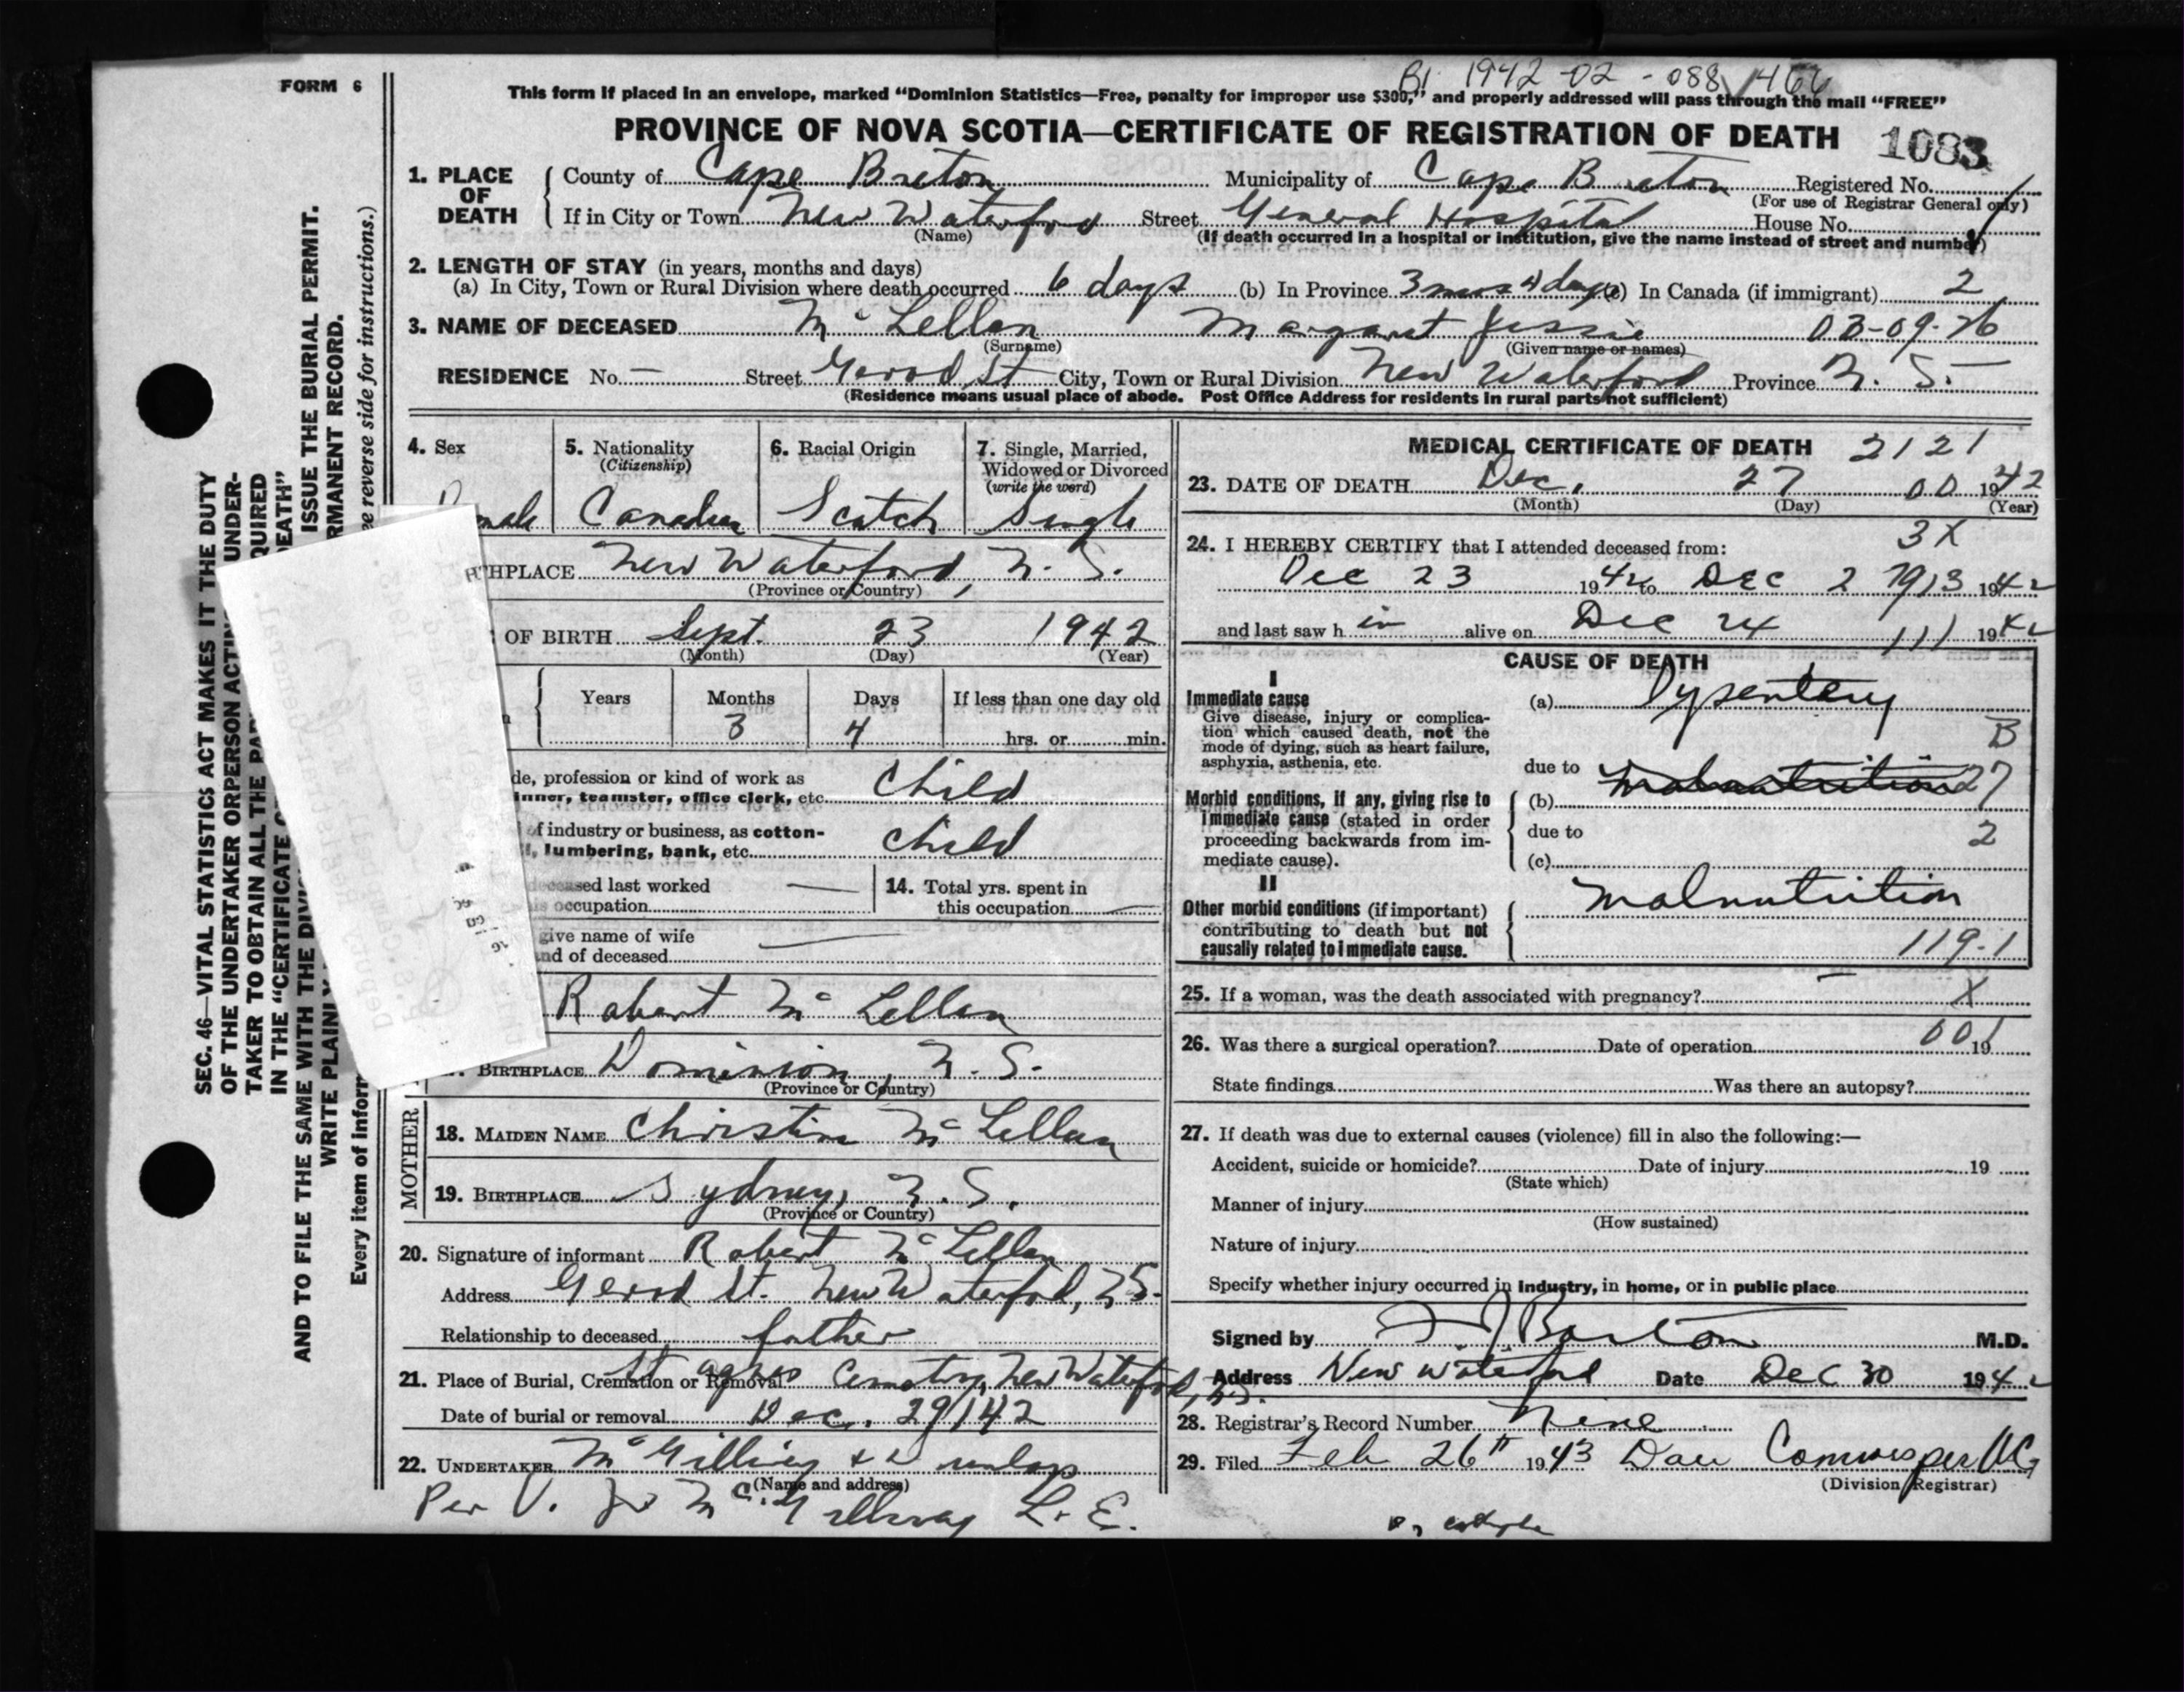 FORM 6
B1 1942-02-088466
This form if placed in an envelope, marked “Dominion Statistics—Free, penalty for improper use $300,” and properly addressed will pass through the mail “FREE”
PROVINCE OF NOVA SCOTIA—CERTIFICATE OF REGISTRATION OF DEATH 1083
1. PLACE OF DEATH County of Cape Breton Municipality of Cape Breton Registered No.
(For use of Registrar General only)
If in City or Town New Waterford Street General Hospital House No.
(Name) (If death occurred in a hospital or institution, give the name instead of street and number)
2. LENGTH OF STAY (in years, months and days)
(a) In City, Town or Rural Division where death occurred 6 days (b) In Province 3 mos 4 days (c) In Canada (if immigrant) 2
3. NAME OF DECEASED McLellan Margaret Jessie 03-09-26
(Surname) (Given name or names)
RESIDENCE No. — Street City, Town or Rural Division New Waterford Province N. S.
(Residence means usual place of abode. Post Office Address for residents in rural parts not sufficient)
4. Sex 5. Nationality (Citizenship) 6. Racial Origin 7. Single, Married, Widowed or Divorced (write the word)
male Canadian Scotch Single
THPLACE New Waterford, N. S.
(Province or Country)
OF BIRTH Sept. 23 1942
(Month) (Day) (Year)
Years Months Days If less than one day old
3 4 hrs. or min.
de, profession or kind of work as
inner, teamster, office clerk, etc. Child
of industry or business, as cotton-
l, lumbering, bank, etc. Child
deceased last worked — 14. Total yrs. spent in
is occupation this occupation —
give name of wife
nd of deceased —
Robert McLellan
BIRTHPLACE Dominion, N. S.
(Province or Country)
MOTHER
18. MAIDEN NAME Christine McLellan
19. BIRTHPLACE Sydney, N. S.
(Province or Country)
20. Signature of informant Robert McLellan
Address St. New Waterford, N S.
Relationship to deceased father
21. Place of Burial, Cremation or Removal St Agnes Cemetery, New Waterford, N.S.
Date of burial or removal Dec. 29/42
22. UNDERTAKER McGillivray & Dunlap
(Name and address)
Per V. McGillivray L. E.
MEDICAL CERTIFICATE OF DEATH 2121
23. DATE OF DEATH Dec. 27 00 1942
(Month) (Day) (Year)
3X
24. I HEREBY CERTIFY that I attended deceased from:
Dec 23 1942 to Dec 27 913 1942
and last saw h im alive on Dec 24 111 1942
CAUSE OF DEATH
I
Immediate cause
Give disease, injury or complication which caused death, not the mode of dying, such as heart failure, asphyxia, asthenia, etc.
(a) Dysentery
B
due to malnutrition 27
Morbid conditions, if any, giving rise to immediate cause (stated in order proceeding backwards from immediate cause).
(b)
due to 2
(c)
II
Other morbid conditions (if important) contributing to death but not causally related to immediate cause.
malnutrition
119-1
25. If a woman, was the death associated with pregnancy? — X
26. Was there a surgical operation? Date of operation 001 19
State findings Was there an autopsy?
27. If death was due to external causes (violence) fill in also the following:—
Accident, suicide or homicide? Date of injury 19
(State which)
Manner of injury
(How sustained)
Nature of injury
Specify whether injury occurred in industry, in home, or in public place
Signed by M.D.
Address New Waterford Date Dec 30 1942
28. Registrar’s Record Number Nine
29. Filed Feb 26th 1943
(Division Registrar)
SEC. 46—VITAL STATISTICS ACT MAKES IT THE DUTY
OF THE UNDERTAKER OR PERSON ACTIN UNDER-
TAKER TO OBTAIN ALL THE PAR QUIRED
IN THE “CERTIFICATE O DEATH”
AND TO FILE THE SAME WITH THE DIVI ISSUE THE BURIAL PERMIT.
WRITE PLAINLY RMANENT RECORD.
Every item of inform ee reverse side for instructions.)